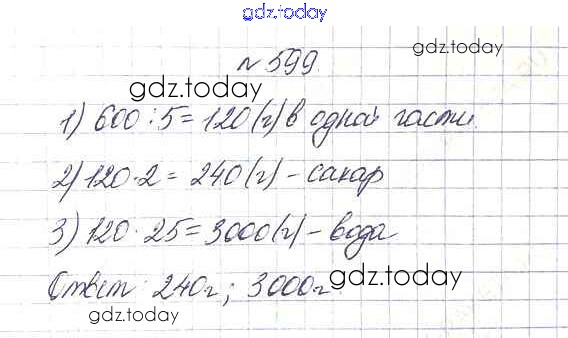 gdz.today
№ 599. gdz.today
gdz.today
1) 600 : 5 = 120 (г) в одной части.
2) 120 · 2 = 240 (г) - сахар
3) 120 · 25 = 3000 (г) - вода
Ответ: 240г; 3000г gdz.today
gdz.today